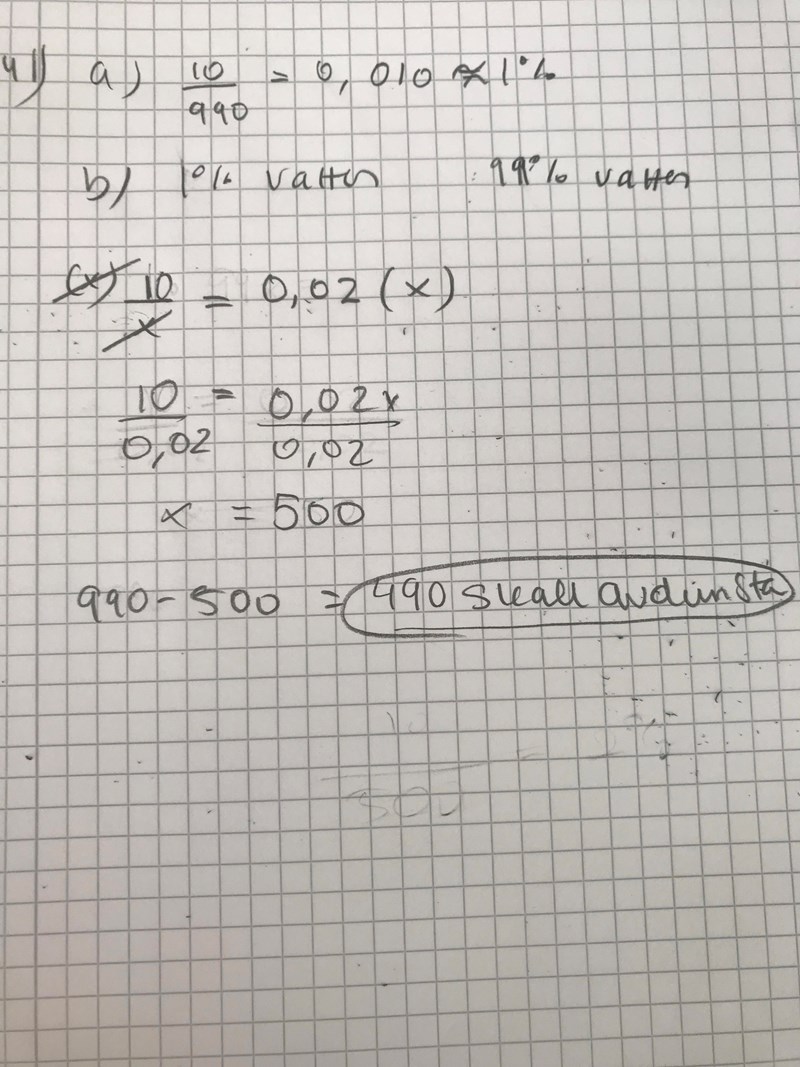 41) a) 10/990 = 0,010 ≈ 1%
b) 1% vatten 99% vatten
(x) 10/x = 0,02 (x)
10/0,02 = 0,02x/0,02
x = 500
990 - 500 = 490 skall avdunsta